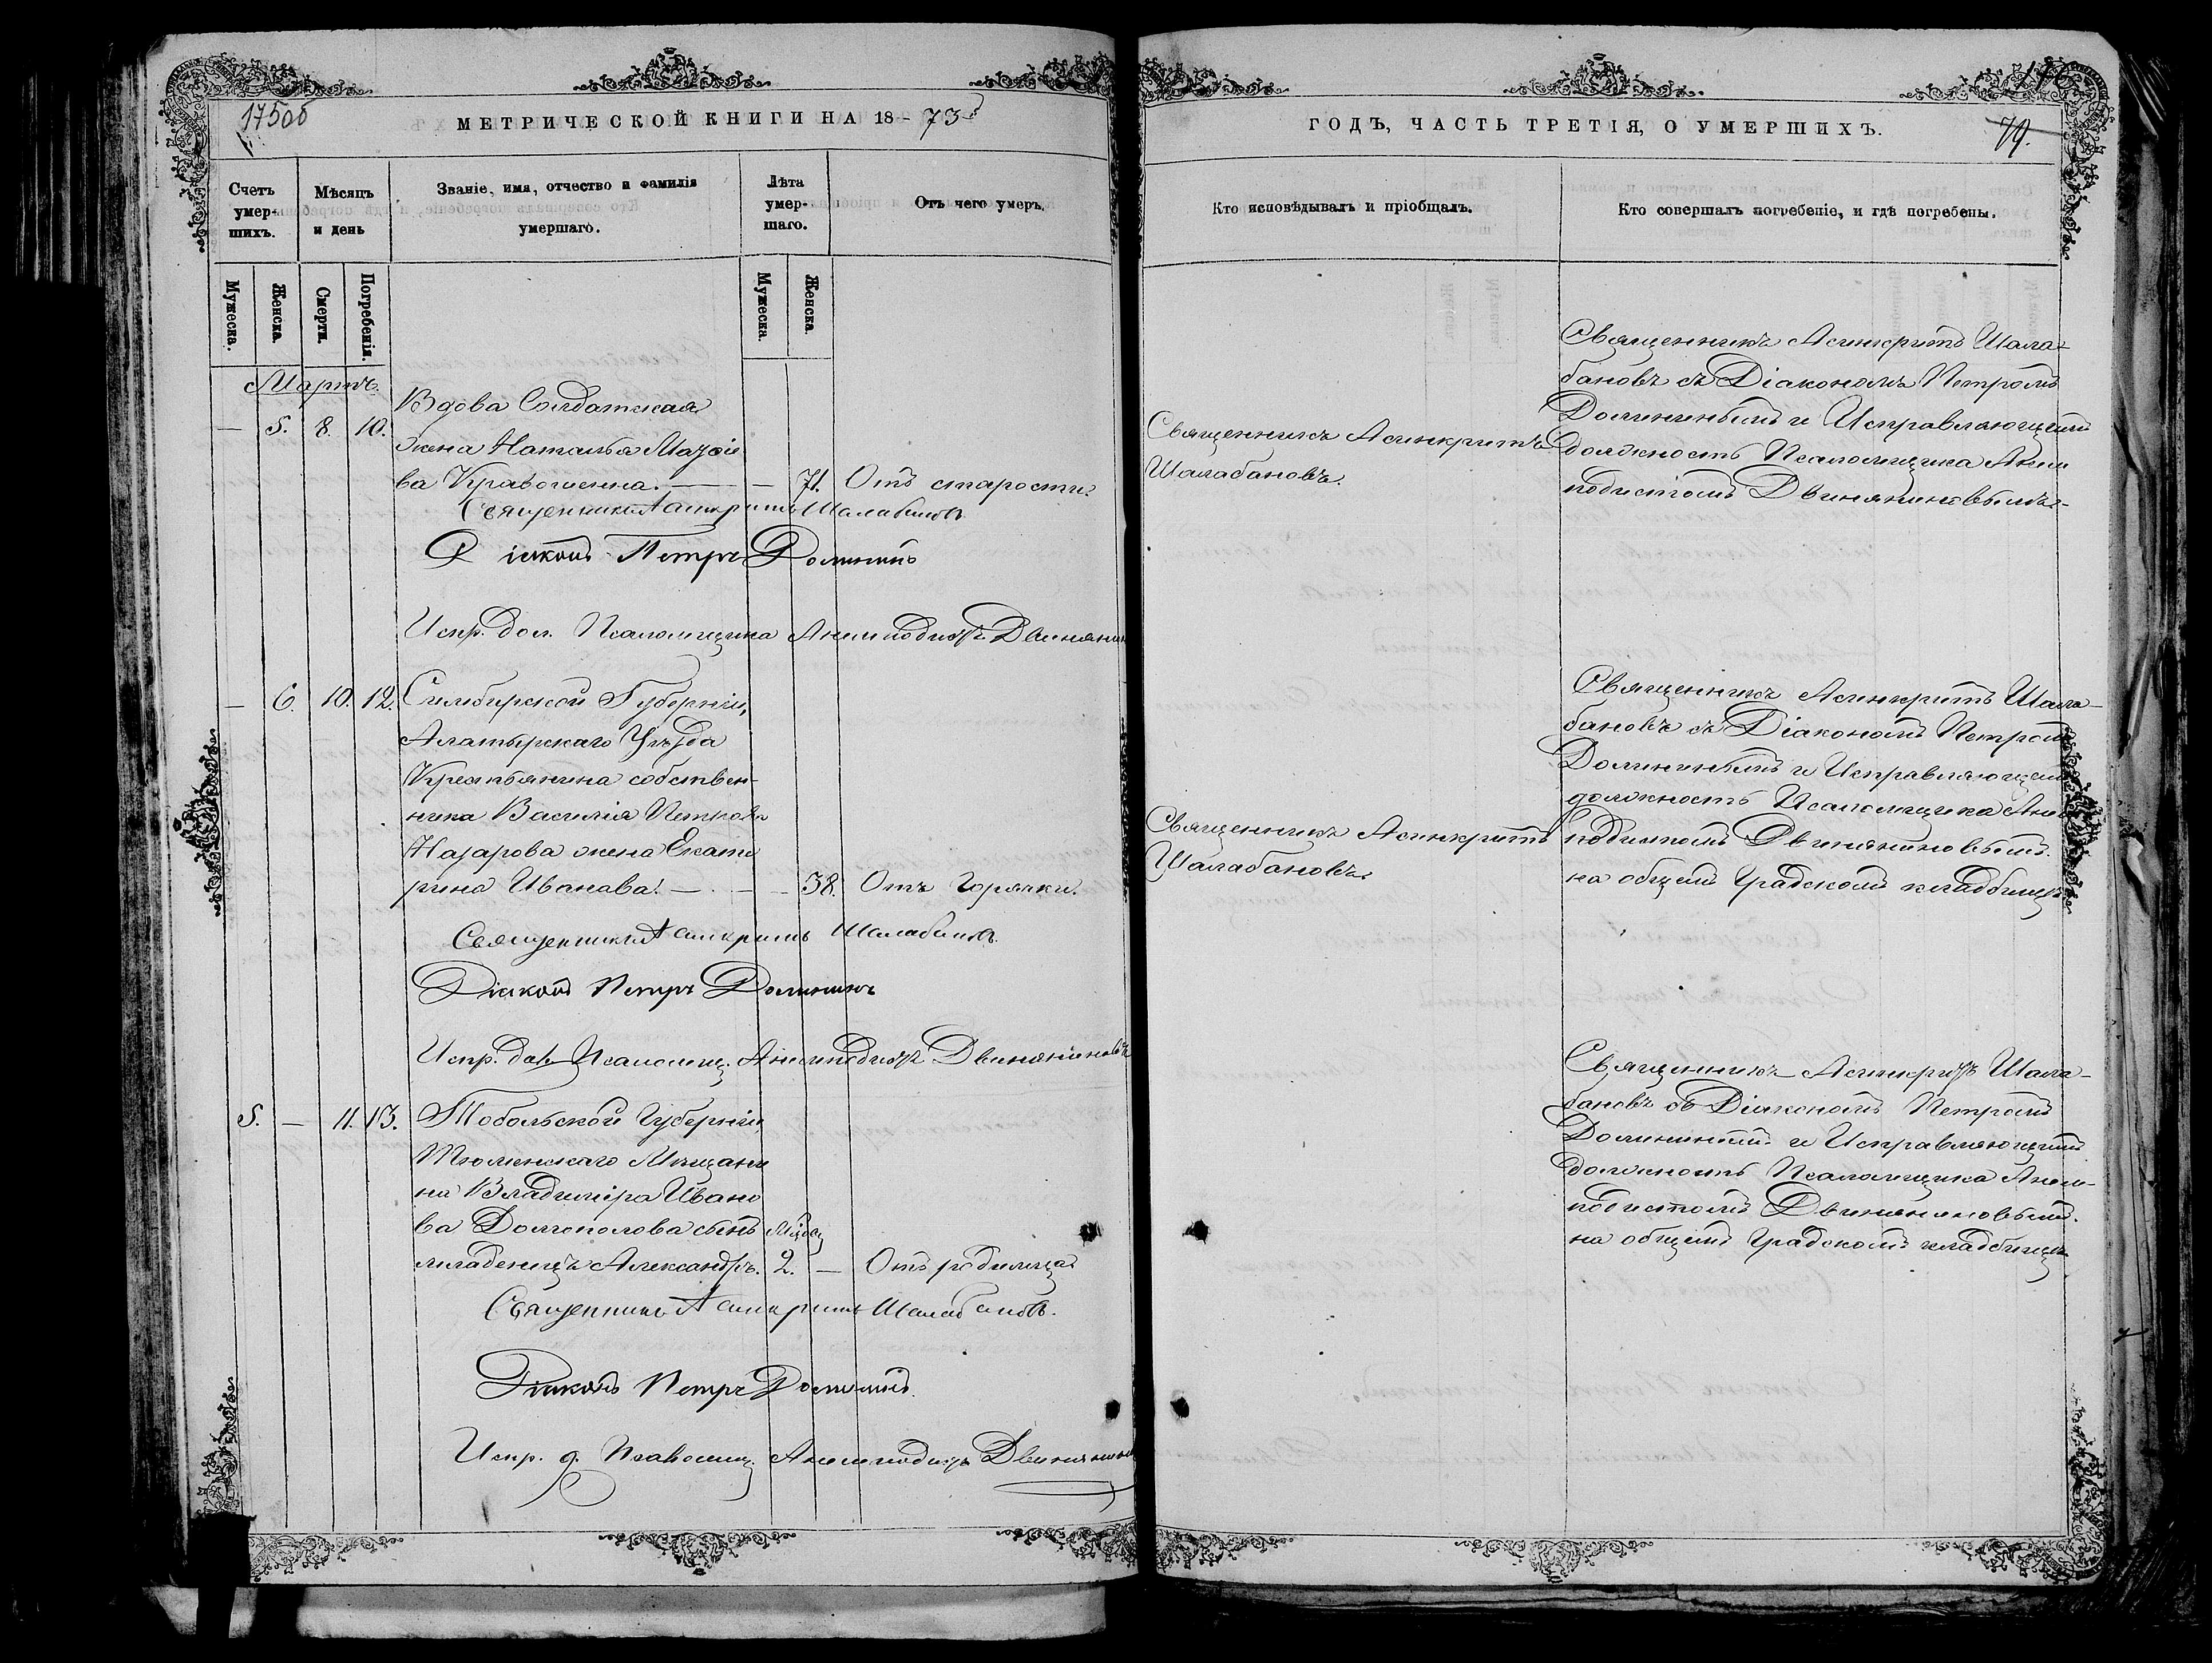 175об
МЕТРИЧЕСКОЙ КНИГИ НА 18-73й
Счетъ умер-шихъ.
Мѣсяцъ и день
Званіе, имя, отчество и фамилія умершаго.
Лѣта умер-шаго.
Отъ чего умеръ.
Мужеска.
Женска.
Смерти.
Погребенія.
Мужеска.
Женска.
Мартъ.
Вдова Солдатская
— 5. 8. 10.
жена Наталья
ва — — 71. Отъ старости.
Священникъ Асинкритъ Шалабановъ
Діаконъ Петръ Долининъ
Испр. дол. Псаломщика Анемподистъ
— 6. 10. 12. Симбирской Губерніи,
Алатырскаго Уѣзда
Крестьянина собствен-
ника Василія Петрова
Назарова жена Екате
рина Иванава. — — 38. Отъ Горячки.
Священникъ Асинкритъ Шалабановъ
Діаконъ Петръ Долининъ
Испр. дол. Псаломщ. Анемподистъ Двиняниновъ
5. — 11. 13. Тобольской Губерніи,
Тюменскаго Мѣщани
на Владиміра Ивано
ва Долгополова сынъ Мѣсец
младенецъ Александръ. 2. — Отъ родимца
Священникъ Асинкритъ Шалабановъ.
Діаконъ Петръ Долининъ.
Испр. д. Псаломщ. Анемподистъ
ГОДЪ, ЧАСТЬ ТРЕТІЯ, О УМЕРШИХЪ.
79.
Кто исповѣдывалъ и пріобщалъ.
Кто совершалъ погребеніе, и гдѣ погребены.
Священникъ Асинкритъ
Шалабановъ.
Священникъ Асинкритъ Шала-
бановъ съ Діакономъ Петромъ
Долининымъ и Исправляющимъ
должность Псаломщика Анем
подистомъ Двиняниновымъ.-
Священникъ Асинкритъ
Шалабановъ
Священникъ Асинкритъ Шала-
бановъ съ Діакономъ Петромъ
Долининымъ и Исправляющимъ
должность Псаломщика Анем
подистомъ Двиняниновымъ.
на общемъ Градскомъ кладбищѣ
Священникъ Асинкритъ Шала-
бановъ съ Діакономъ Петромъ
Долининымъ и Исправляющимъ
должность Псаломщика Анем-
подистомъ Двиняниновымъ.
на общемъ Градскомъ кладбищѣ